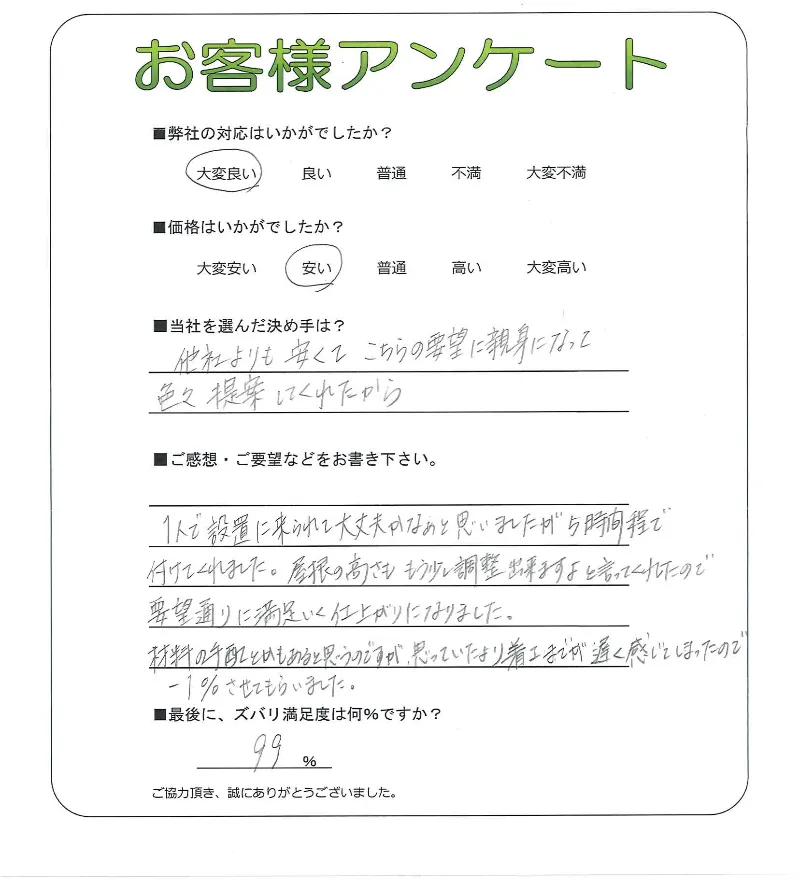 お客様アンケート
■弊社の対応はいかがでしたか？
大変良い 良い 普通 不満 大変不満
■価格はいかがでしたか？
大変安い 安い 普通 高い 大変高い
■当社を選んだ決め手は？
他社よりも 安くて こちらの要望に親身になって
色々 提案してくれたから
■ご感想・ご要望などをお書き下さい。
1人で設置に来られて大丈夫かなぁと思いましたが 5時間程で
付けてくれました。屋根の高さも もう少し調整出来ますよと言ってくれたので
要望通りに満足いく仕上がりになりました。
材料の手配とかもあると思うのですが、思っていたより着工までが遅く感じてしまったので
-1%させてもらいました。
■最後に、ズバリ満足度は何%ですか？
99 %
ご協力頂き、誠にありがとうございました。